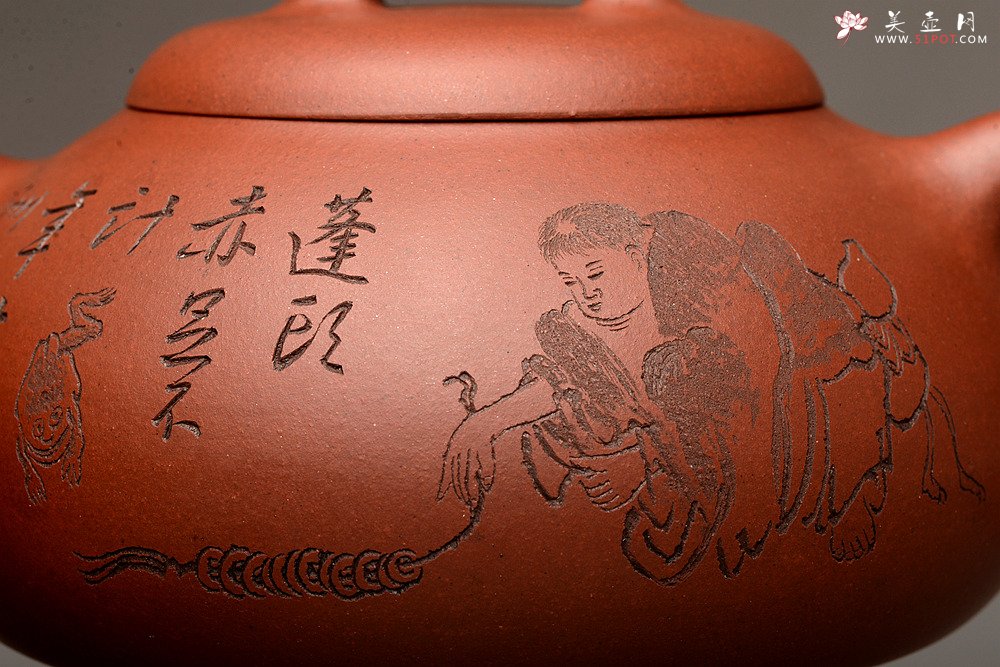 蓬頭
赤足不
计
年
美壶网
WWW.51POT.COM